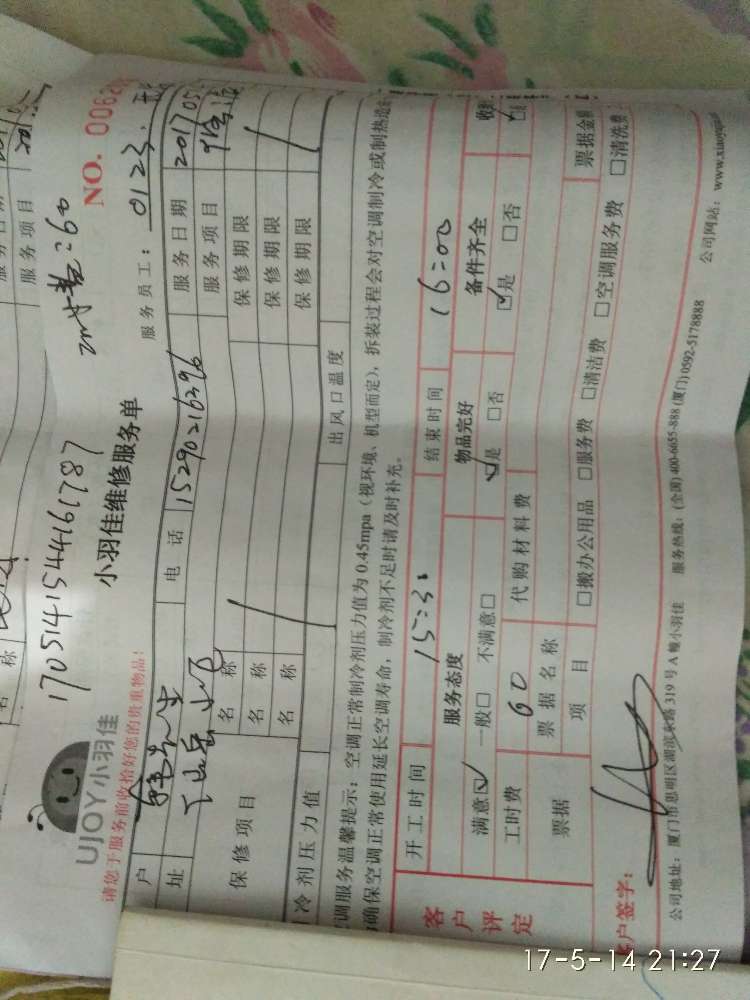 服务项目
名称
1705141544161787
UJOY小羽佳
小羽佳维修服务单
NO. 0062
请您于服务前收拾好您的贵重物品!
服务员工: 0123
户 先生 电话 15290216396 服务日期 2017 05
址 仙岳 服务项目
保修项目 名称 保修期限
名称 保修期限
名称 保修期限
冷剂压力值 出风口温度
调服务温馨提示: 空调正常制冷剂压力值为 0.45mpa (视环境、机型而定), 拆装过程会对空调制冷或制热造
确保空调正常使用延长空调寿命, 制冷剂不足时请及时补充。
客户评定
开工时间 15:30 结束时间 16:00
服务态度 物品完好 备件齐全
满意☑ 一般□ 不满意□ ☑是 □否 ☑是 □否
工时费 60 代购材料费
票据 票据名称 票据金额
项目 □搬办公用品 □服务费 □清洁费 □空调服务费 □清洗费
客户签字:
公司地址: 厦门市思明区湖滨东路 319 号 A 幢小羽佳 服务热线: (全国) 400-6655-888 (厦门) 0592-5178888 公司网站: www.xiaoyujia
17-5-14 21:27